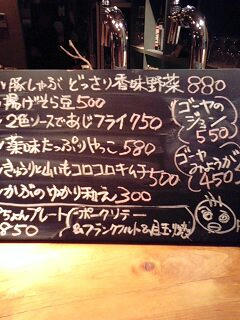 豚しゃぶ どっさり香味野菜 880
揚げそら豆 500
2色ソースであじフライ 750
薬味たっぷりやっこ 580
きゅうりと山いもコロコロキムチ 500
かぶのゆかり和え 300
ちょいプレート
850
ポークソテー
&フランクフルト&目玉焼き
ゴーヤの
550
ゴーヤ
みょうが
450